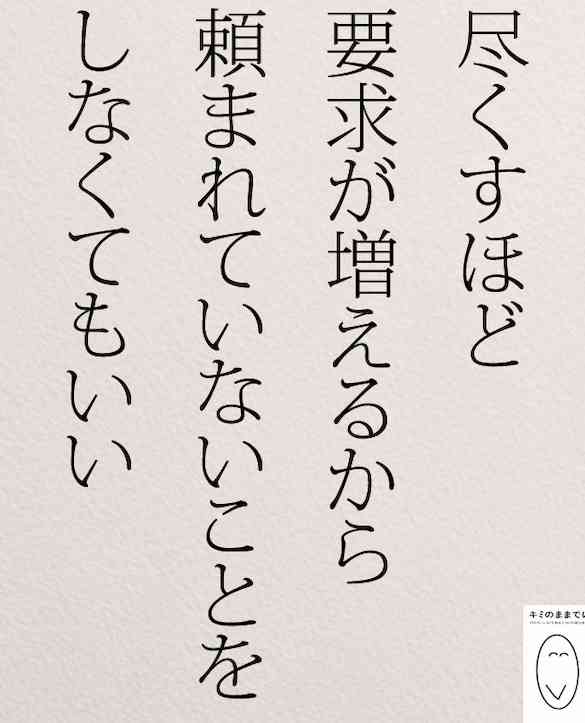 尽くすほど
要求が増えるから
頼まれていないことを
しなくてもいい
キミのままで